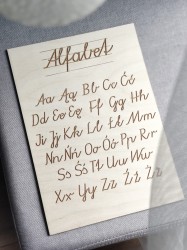 Alfabet
Aa Ąą Bb Cc Ćć
Dd Ee Ęę Ff Gg Hh
Ii Jj Kk Ll Łł Mm
Nn Ńń Oo Óó Pp Rr
Ss Śś Tt Uu Ww
Xx Yy Zz Źź Żż